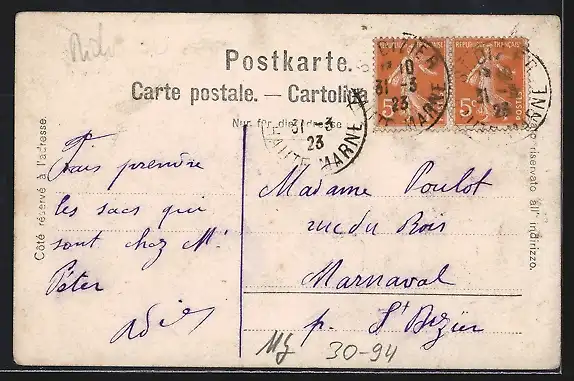 Postkarte.
Carte postale. — Cartolina
Nur für die Adresse
Côté réservé à l'adresse.
riservato all' indirizzo.
REPUBLIQUE FRANÇAISE
5c
POSTES
DIZIER
10
31 - 3
23
HAUTE MARNE
31 - 3
23
HAUTE MARNE
Fais prendre
les sacs qui
sont chez Mr
Péter
Madame Poulot
rue du Bois
Marnaval
p. St Dizier
30-94